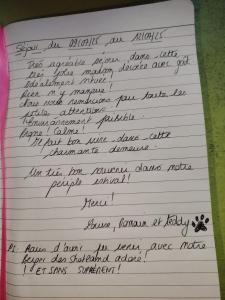 Séjour du 09/07/25 au 12/07/25
Très agréable séjour dans cette
très jolie maison décorée avec goût
Idéalement située !
Rien n'y manque !
Nous vous remercions pour toutes les
petites attentions.
Environnement paisible.
Propre ! Calme !
Il fait bon vivre dans cette
charmante demeure.
Un très bon souvenir dans notre
périple estival !
Merci !
Romain et Teddy
PS. d'avoir pu venir avec notre
berger des shetland adoré !
! ET SANS SUPPLÉMENT !